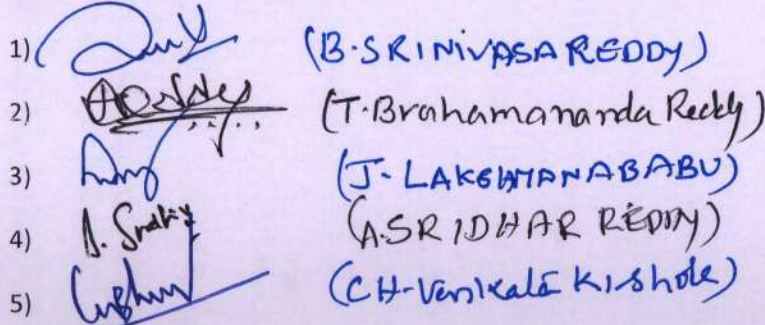 1) (B.SRINIVASA REDDY)
2) (T.Brahamananda Reddy)
3) (J-LAKSHMANABABU)
4) (A.SRIDHAR REDDY)
5) (CH-Venkata Kishole)